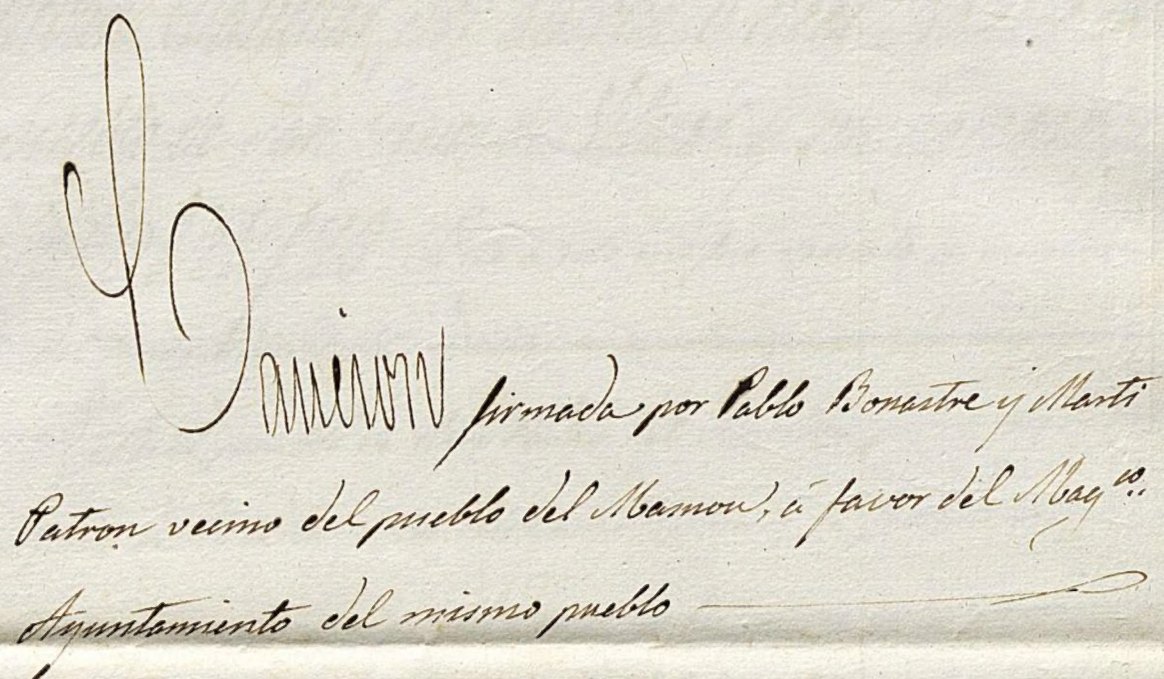 Caucion firmada por Pablo Bonastre y Marti
Patron vecino del pueblo del Masnou, á favor del Mag.co
Ayuntamiento del mismo pueblo